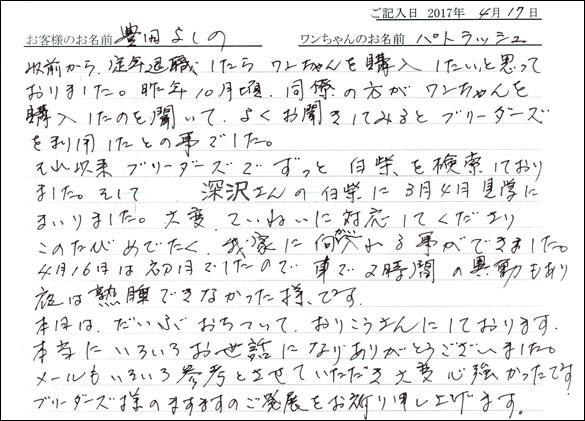 ご記入日 2017年 4月17日
お客様のお名前 豊田よしの ワンちゃんのお名前 パトラッシュ
以前から、定年退職したら ワンちゃんを購入したいと思って
おりました。昨年10月頃、同僚の方がワンちゃんを
購入したのを聞いて、よくお聞きしてみると ブリーダーズ
を利用したとの事でした。
それ以来 ブリーダーズで ずっと 白柴を検索しており
ました。そして 深沢さんの白柴に3月4月見学に
まいりました。大変、ていねいに対応してくださり
このたびめでたく、我家に 向かえれる事ができました。
4月16日は初日でしたので、車で2時間の異動もあり
夜は熟睡できなかった様です。
本日は、だいぶおちついて、おりこうさんにしております。
本当にいろいろお世話になりありがとうございました。
メールもいろいろ参考とさせていただき大変心強かったです
ブリーダーズ様のますますのご発展をお祈り申し上げます。